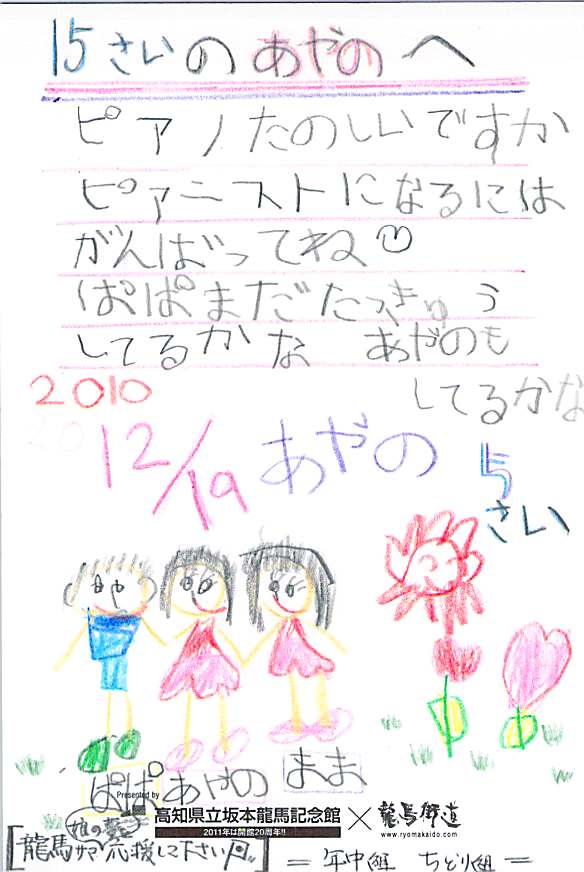 15さいの あやの へ
ピアノ たのしいですか
ピアニストになるには
がんばってね
ぱぱ まだ たっきゅう
してるかな あやのも
してるかな
2010
12/19 あやの 5さい
ぱぱ あやの まま
Presented by 高知県立坂本龍馬記念館 × 龍馬街道
2011年は開館20周年!! www.ryomakaido.com
娘の夢を
[龍馬サマ 応援して下さい]
= 年中組 ちどり組 =